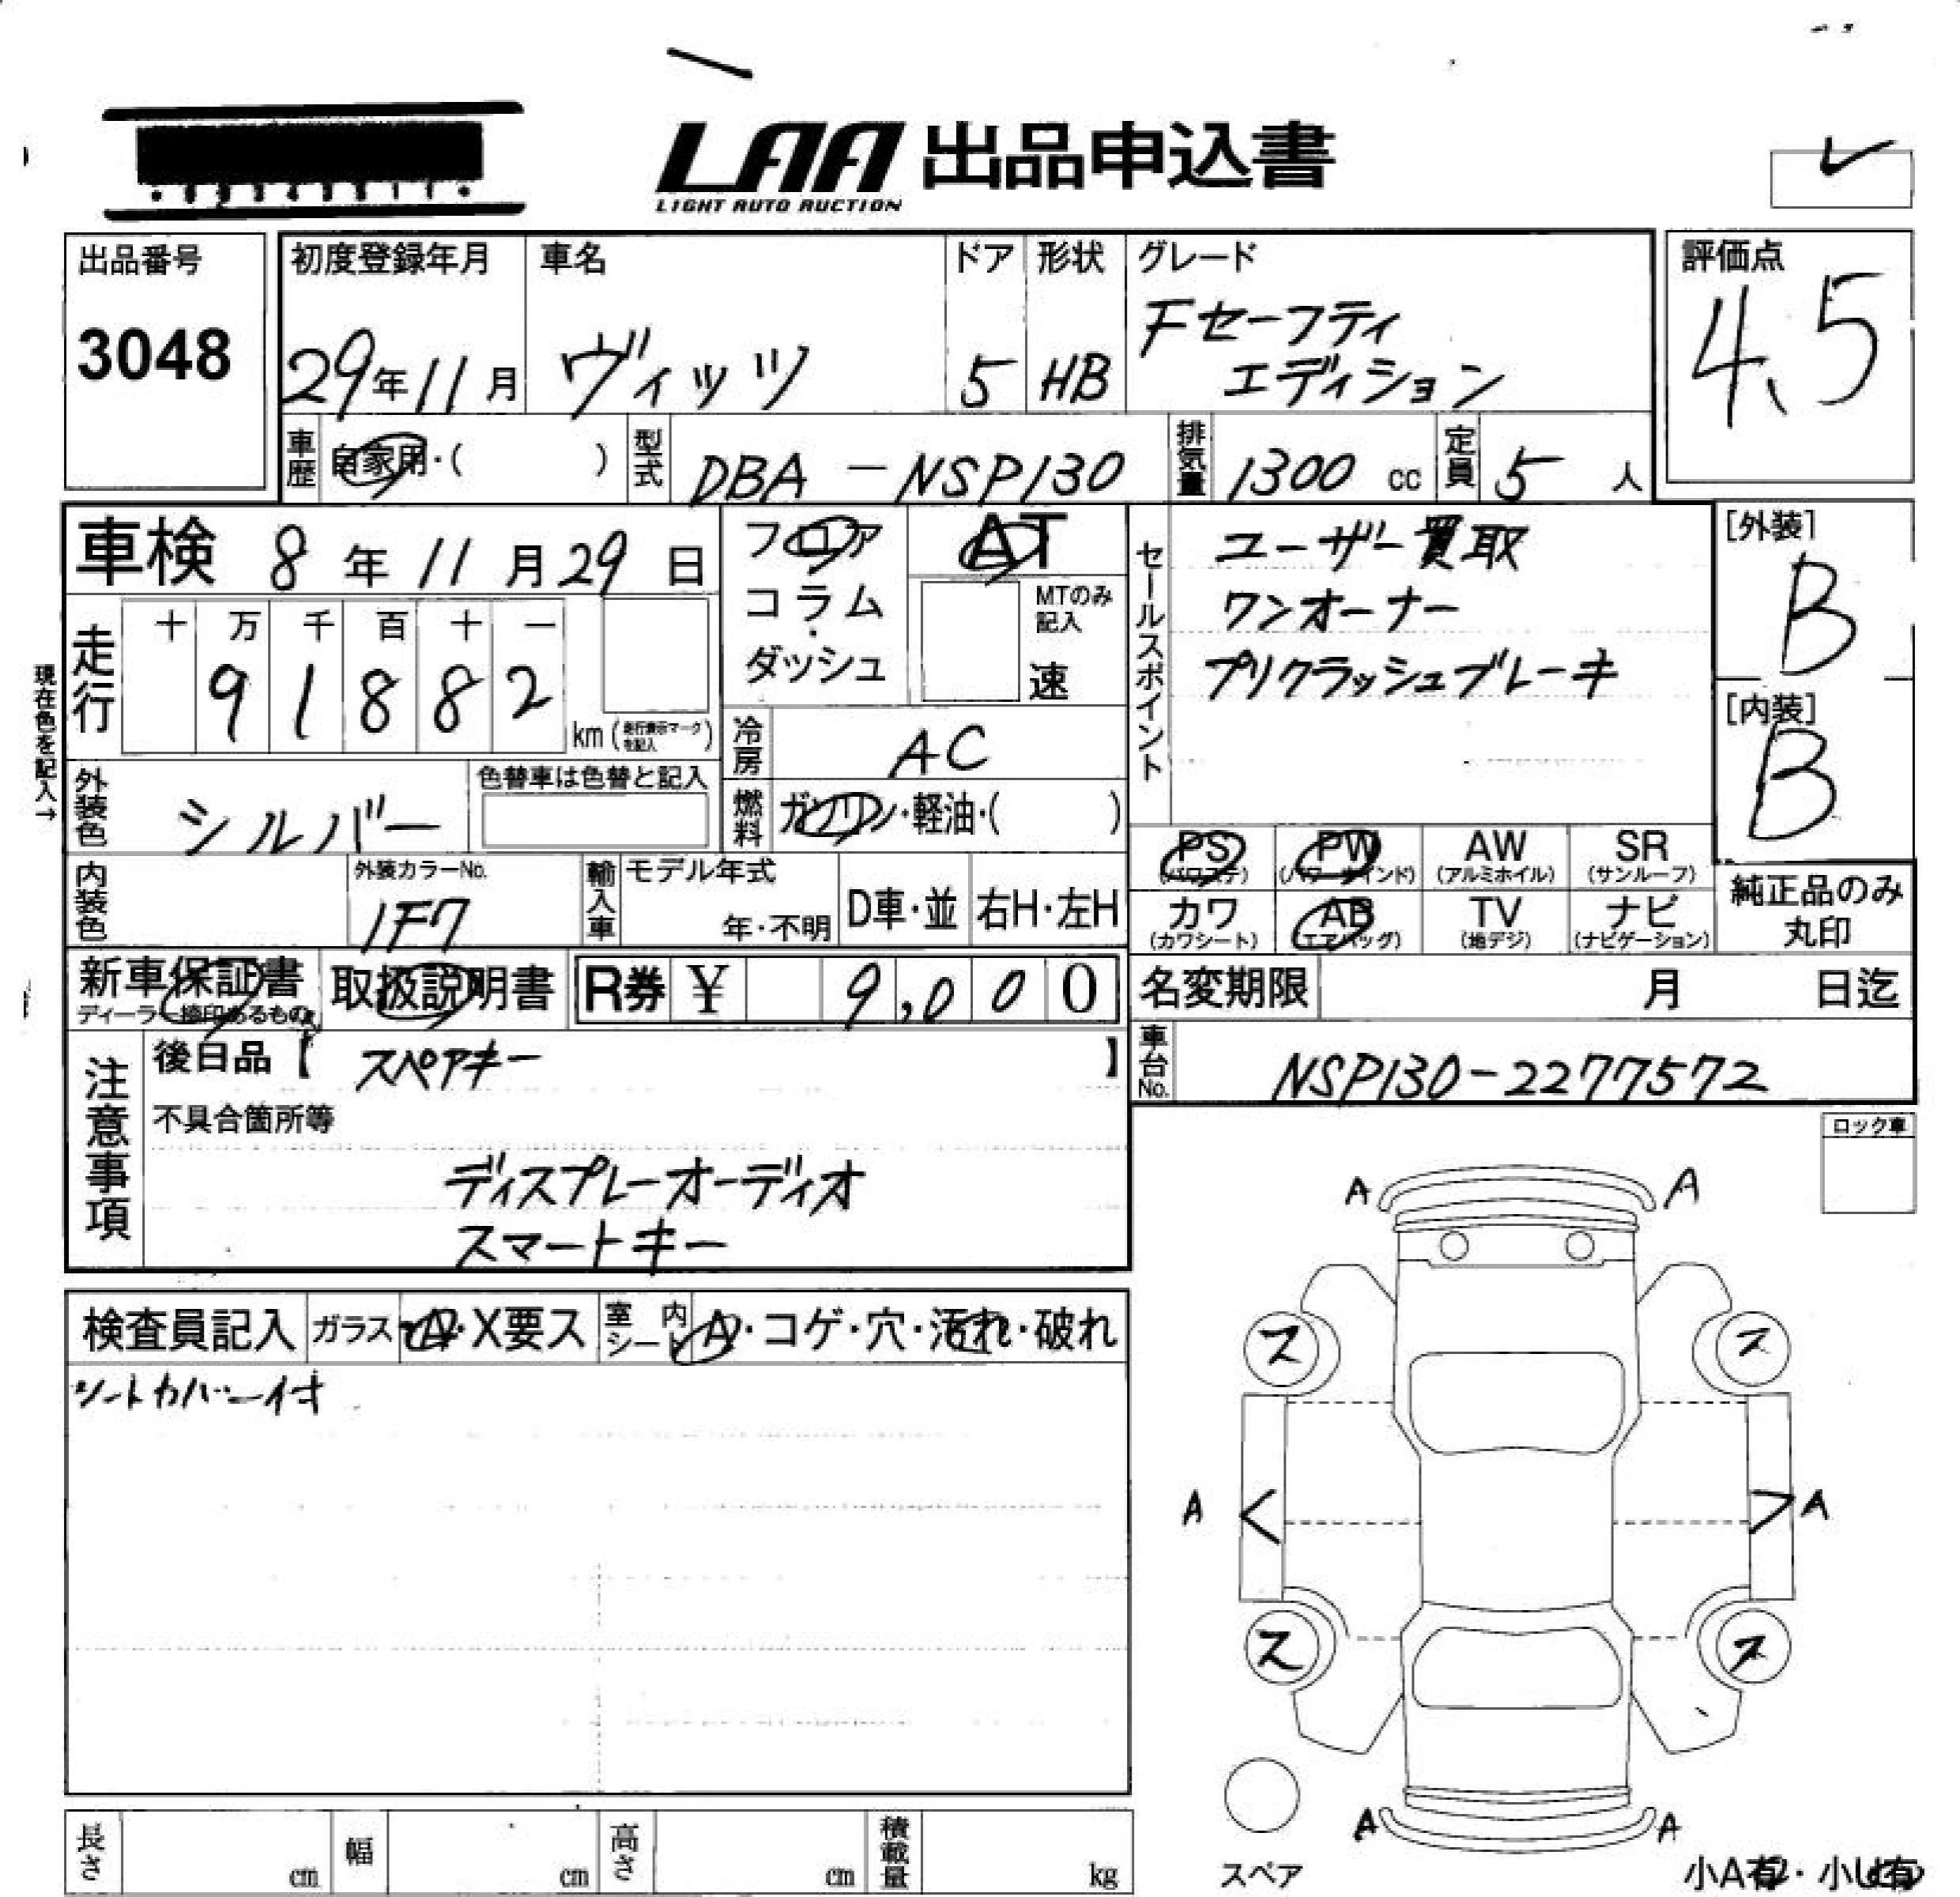 LAA 出品申込書
LIGHT AUTO AUCTION
出品番号
3048
初度登録年月
29年11月
車名
ヴィッツ
ドア
5
形状
HB
グレード
Fセーフティ
エディション
評価点
4.5
車歴
自家用・( )
型式
DBA-NSP130
排気量
1300 cc
定員
5 人
車検 8年11月29日
走行
十 万 千 百 十 一
9 1 8 8 2
km (走行表示マークを記入)
現在色を記入→
フロア
コラム
・
ダッシュ
AT
MTのみ
記入
速
冷房
AC
燃料
ガソリン・軽油・( )
セールスポイント
ユーザー買取
ワンオーナー
プリクラッシュブレーキ
[外装]
B
[内装]
B
外装色
シルバー
色替車は色替と記入
内装色
外装カラーNo.
1F7
輸入車
モデル年式
年・不明
D車・並
右H・左H
PS
(パワステ)
PW
(パワーウインド)
AW
(アルミホイル)
SR
(サンルーフ)
カワ
(カワシート)
AB
(エアバッグ)
TV
(地デジ)
ナビ
(ナビゲーション)
純正品のみ
丸印
新車保証書
ディーラー捺印あるもの
取扱説明書
R券 ¥ 9,000
名変期限 月 日迄
車台No.
NSP130-2277572
注意事項
後日品【 スペアキー 】
不具合箇所等
ディスプレーオーディオ
スマートキー
ロック車
検査員記入
ガラス
A・X要ス
室内
シート
A・コゲ・穴・汚れ・破れ
シートカバー付
A A
ス ス
A < > A
ス ス
A A
スペア
小A有・小U有
長さ cm
幅 cm
高さ cm
積載量 kg